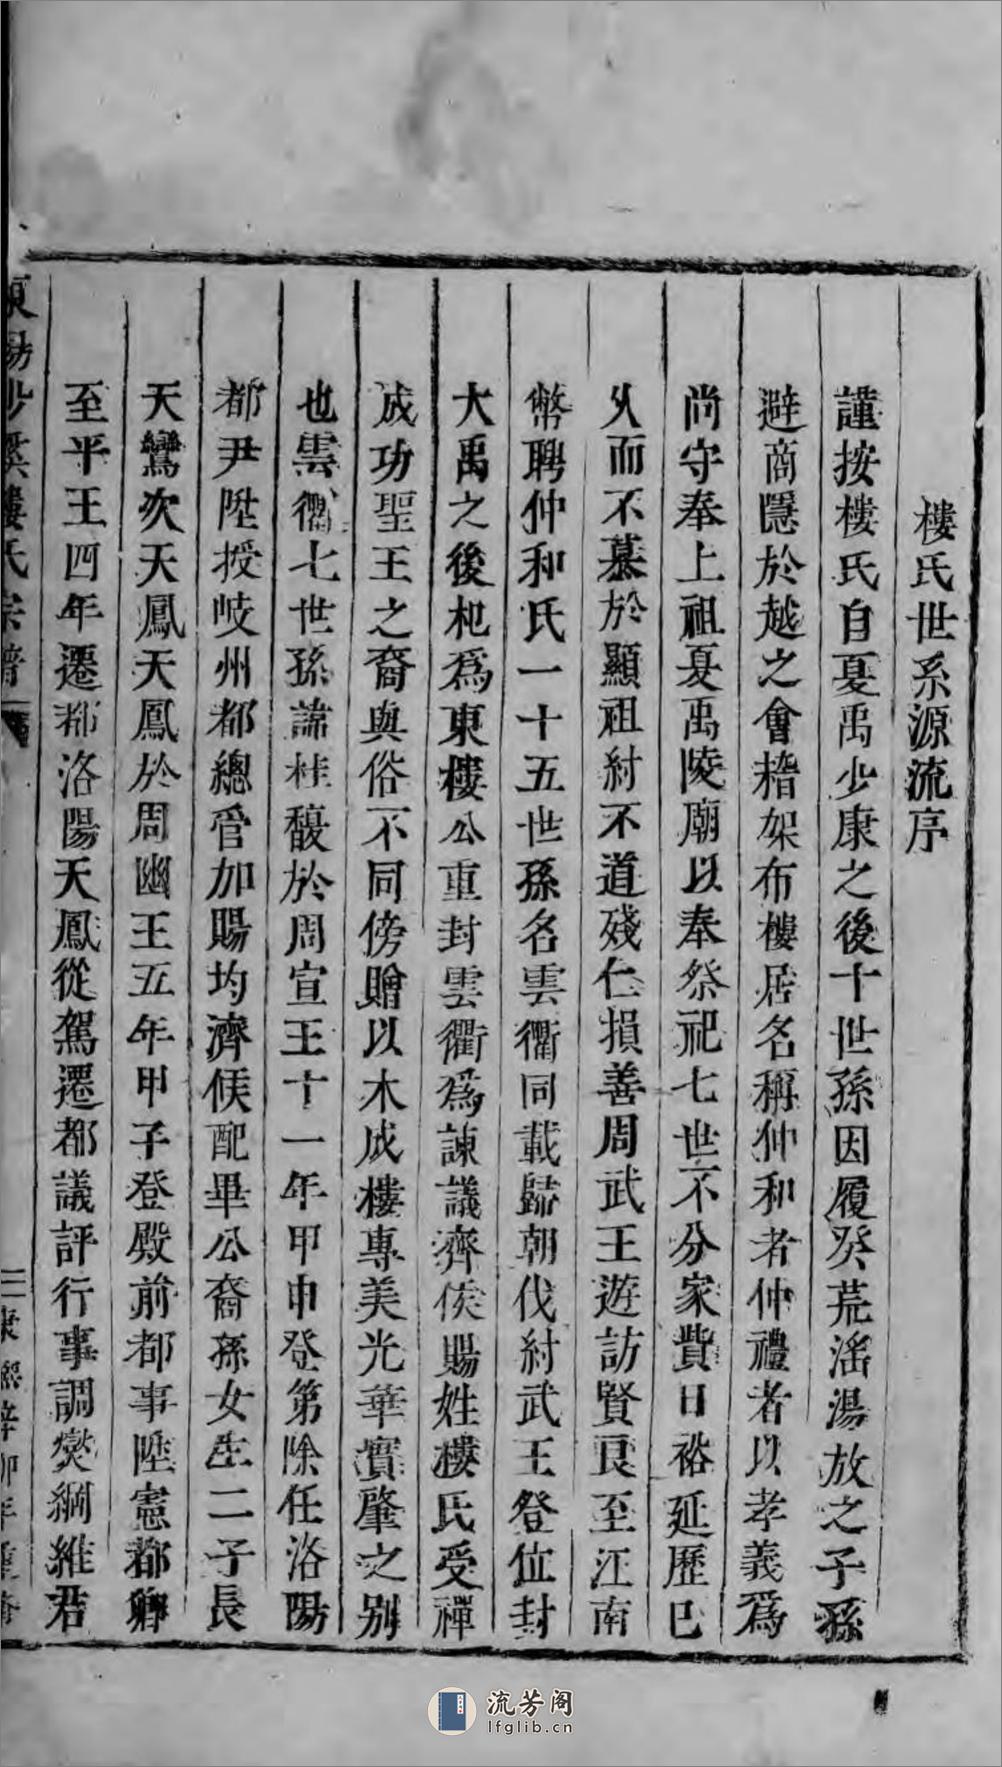 樓氏世系源流序
謹按樓氏自夏禹少康之後十世孫因履癸荒滛湯放之子孫
避商隱於越之會稽架布樓居名稱仲和者仲禮者以孝義爲
尚守奉上祖夏禹陵廟以奉祭祀七世不分家費日裕延歷已
乆而不慕於顯祖紂不道殘仁損善周武王遊訪賢良至江南
幣聘仲和氏一十五世孫名雲衢同載歸朝伐紂武王登位封
大禹之後杞爲東樓公重封雲衢爲諫議齊侯賜姓樓氏受禪
成功聖王之裔與俗不同傍贈以木成樓專美光華實肇之别
也雲衢七世孫諱桂馥於周宣王十一年甲申登第除任洛陽
都尹陞授岐州都總管加賜均濟侯配畢公裔孫女生二子長
天鸞次天鳳天鳳於周幽王五年甲子登殿前都事陞憲都卿
至平王四年遷都洛陽天鳳從駕遷都議評行事調爕綱維君
東陽沙溪樓氏宗譜
三 康熙辛卯年重脩
流芳阁
lfglib.cn